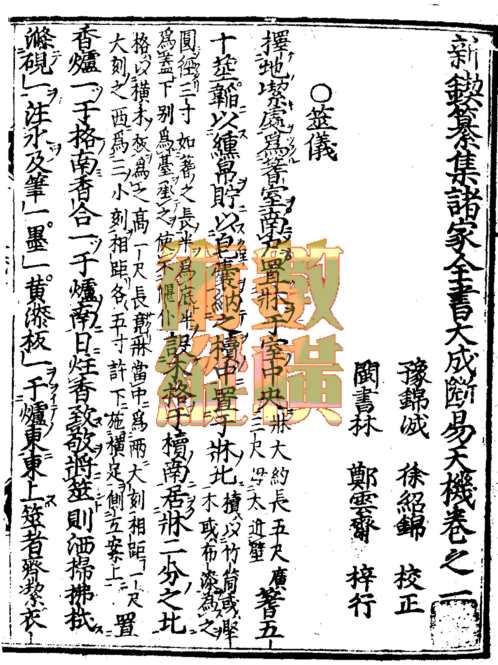 新鍥纂集諸家全書大成斷易天機卷之二
豫錦誠 徐紹錦 校正
閩書林 鄭雲齋 梓行
○筮儀
擇地潔處爲蓍室南戶置牀于室中央牀大約長五尺廣三尺毋太近壁蓍五
十莖韜以纁帛貯以皂囊納之櫝中置于牀北櫝以竹筒或堅木或布漆爲之
圓徑三寸如蓍之長半爲底半爲蓋下別爲臺函之使不偃仆設木格于櫝南居牀二分之北
格以橫木板爲之高一尺長竟牀當中爲兩大刻相距一尺大刻之西爲三小刻相距各五寸許下施橫足側立案上置
香爐一于格南香合一于爐南日炷香致敬將筮則洒掃拂拭
滌硯一注水及筆一墨一黃漆板一于爐東東上筮者齊潔衣
術數
縱橫